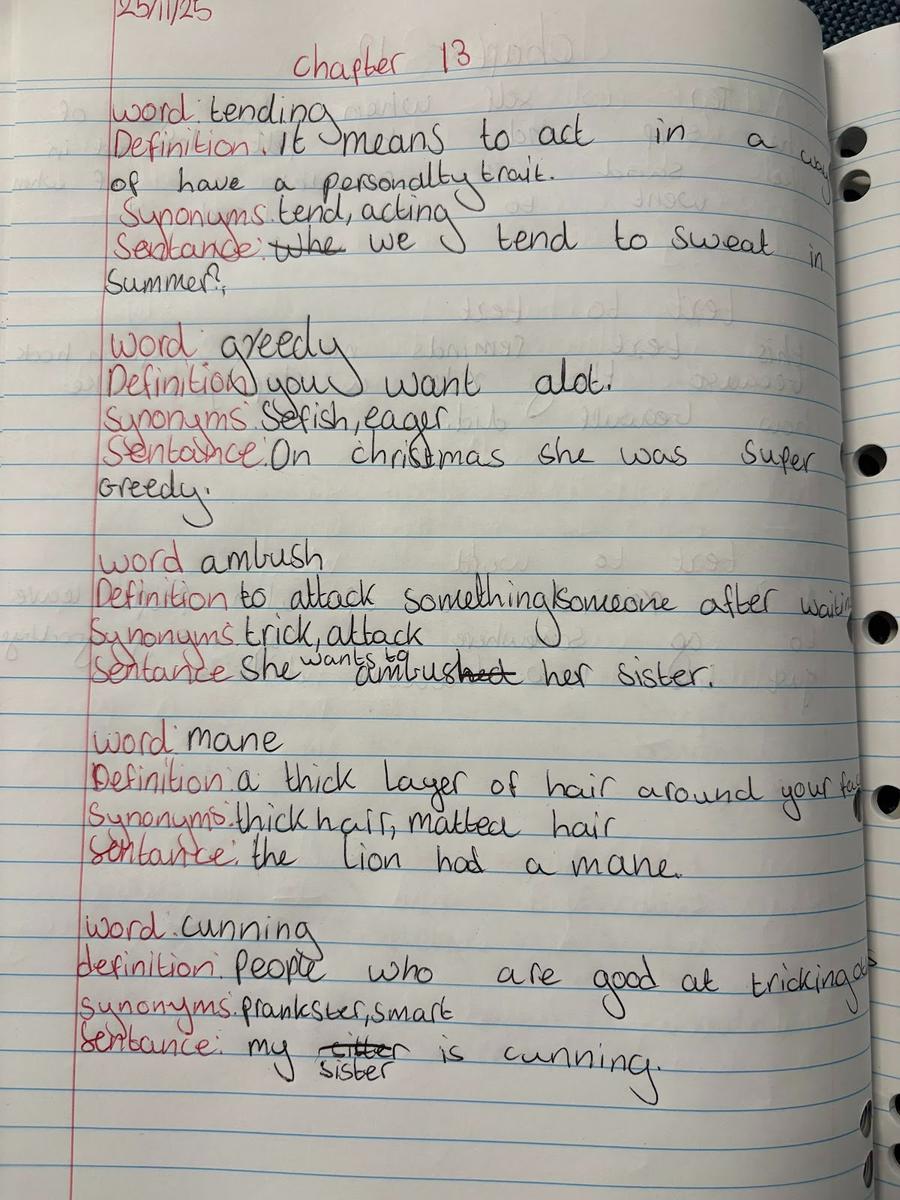 25/11/25
Chapter 13
Word: tending
Definition: It means to act in a way
of have a personalty trait.
Synonyms: tend, acting
Sentance: whe we tend to sweat in
Summer?
word: greedy
Definition: you want alot.
synonyms: Sefish, eager
Sentance: On christmas she was super
Greedy.
word ambush
Definition to attack something/someone after waitin
Synonyms: trick, attack
Sentance She wants to ambushed her sister.
word: mane
Definition: a thick layer of hair around your fa
Synonyms: thick hair, matted hair
Sentance: the lion had a mane.
word: cunning
definition: people who are good at tricking
synonyms: prankster, smart
Sentance: my sitter is cunning.
sister